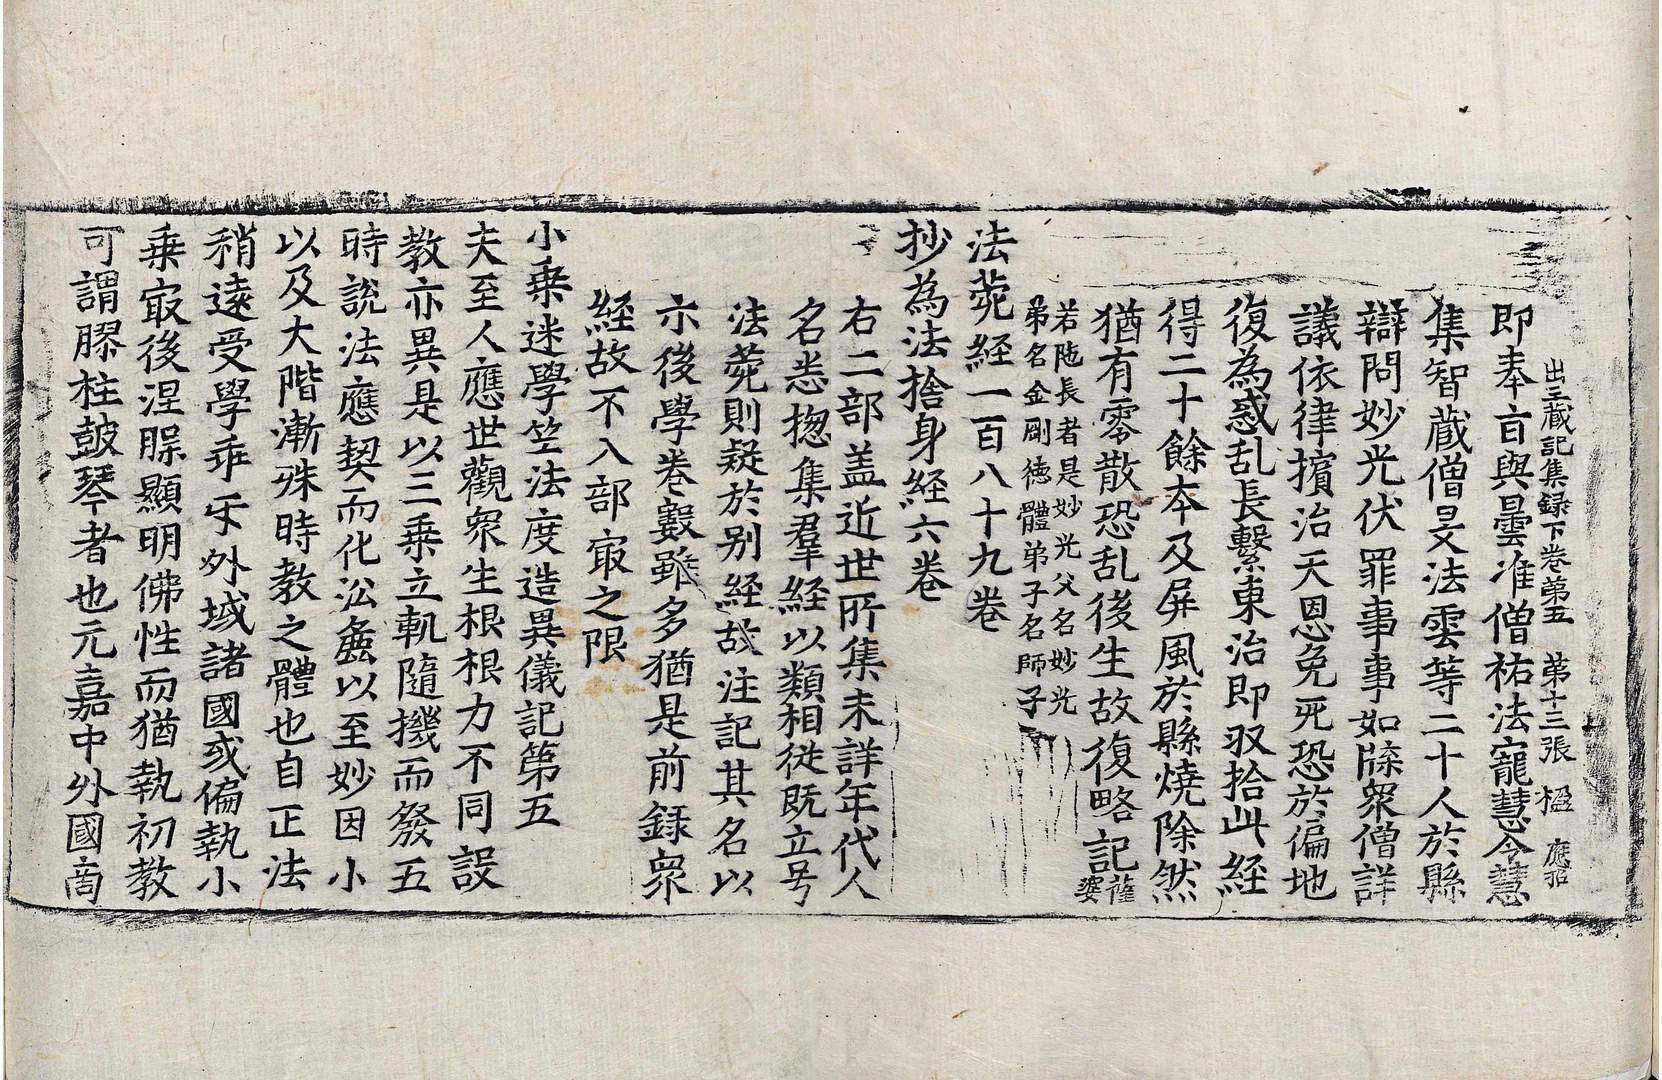 出三藏記集録下卷第五 第十三張 楹
即奉旨與曇准僧祐法寵慧令慧
集智藏僧旻法雲等二十人於縣
辯問妙光伏罪事事如牒衆僧詳
議依律擯治天恩免死恐於偏地
復為惑乱長繫東治即収拾此経
得二十餘本及屏風於縣燒除然
猶有零散恐乱後生故復略記薩婆
若陁長者是妙光父名妙光
弟名金剛徳體弟子名師子
法菀経一百八十九卷
抄為法捨身経六卷
右二部盖近世所集未詳年代人
名悉揔集羣経以類相従既立号
法菀則疑於别経故注記其名以
示後學卷數雖多猶是前録衆
経故不入部㝡之限
小乗迷學竺法度造異儀記第五
夫至人應世觀衆生根根力不同設
教亦異是以三乗立軌隨機而發五
時說法應契而化㳂麁以至妙因小
以及大階漸殊時教之體也自正法
稍遠受學乖牙外域諸國或偏執小
乗㝡後涅槃顯明佛性而猶執初教
可謂膠柱皷琴者也元嘉中外國商